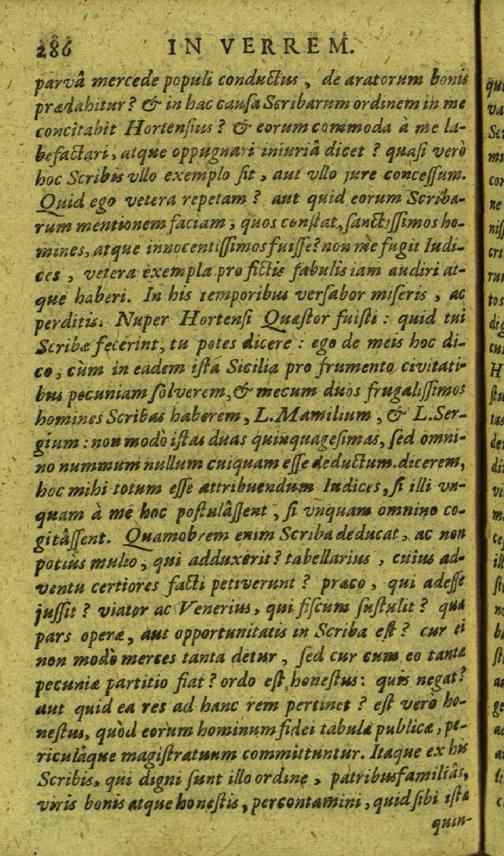 286 IN VERREM.
parvâ mercede populi conductus, de aratorum bonis
prædabitur? & in hac causa Scribarum ordinem in me
concitabit Hortensius? & eorum commoda à me la-
befactari, atque oppugnari iniuriâ dicet? quasi verò
hoc Scribis vllo exemplo sit, aut vllo jure concessum.
Quid ego vetera repetam? aut quid eorum Scriba-
rum mentionem faciam, quos constat, sanctissimos ho-
mines, atque innocentissimos fuisse? non me fugit Iudi-
ces, vetera exempla pro fictis fabulis iam audiri at-
que haberi. In his temporibus versabor miseris, ac
perditis. Nuper Hortensi Quæstor fuisti: quid tui
Scribæ fecerint, tu potes dicere: ego de meis hoc di-
co, cùm in eadem istâ Sicilia pro frumento civitati-
bus pecuniam solverem, & mecum duos frugalissimos
homines Scribas haberem, L. Mamilium, & L. Ser-
gium: non modò istas duas quinquagesimas, sed omni-
no nummum nullum cuiquam esse deductum. dicerem,
hoc mihi totum esse attribuendum Iudices, si illi vn-
quam à me hoc postulâssent, si vnquam omnino co-
gitâssent. Quamobrem enim Scriba deducat, ac non
potiùs mulio, qui adduxerit? tabellarius, cuius ad-
ventu certiores facti petiverunt? præco, qui adesse
jussit? viator ac Venerius, qui fiscum sustulit? qua
pars operæ, aut opportunitatis in Scriba est? cur ei
non modò merces tanta detur, sed cur cum eo tantæ
pecuniæ partitio fiat? ordo est honestus: quis negat?
aut quid ea res ad hanc rem pertinet? est verò ho-
nestus, quòd eorum hominum fidei tabulæ publicæ, pe-
riculáque magistratuum committuntur. Itaque ex his
Scribis, qui digni sunt illo ordine, patribusfamiliâs,
viris bonis atque honestis, percontamini, quid sibi ista
quin-